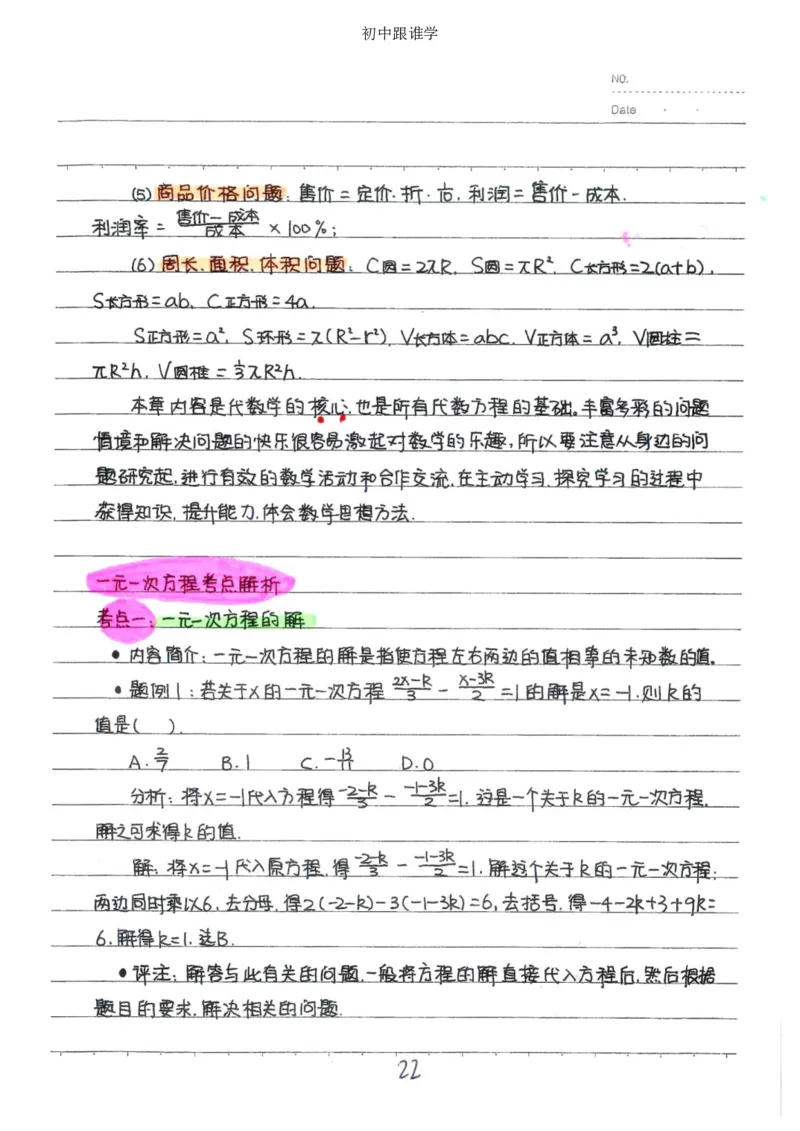 初中跟谁学
NO.
Date
(5) 商品价格问题: 售价 = 定价·折· , 利润 = 售价 - 成本.
利润率 = (售价-成本)/成本 × 100%;
(6) 周长、面积、体积问题: C圆=2πR, S圆=πR², C长方形=2(a+b),
S长方形=ab, C正方形=4a,
S正方形=a², S环形=π(R²-r²), V长方体=abc, V正方体=a³, V圆柱=
πR²h, V圆锥=⅓πR²h.
本章内容是代数学的核心,也是所有代数方程的基础。丰富多彩的问题
情境和解决问题的快乐很容易激起对数学的乐趣,所以要注意从身边的问
题研究起,进行有效的数学活动和合作交流,在主动学习、探究学习的过程中
获得知识,提升能力,体会数学思想方法.
一元一次方程考点解析
考点一: 一元一次方程的解
• 内容简介: 一元一次方程的解是指使方程左右两边的值相等的未知数的值。
• 题例1: 若关于x的一元一次方程 (2x-k)/3 - (x-3k)/2 =1的解是x=-1,则k的
值是( ).
A. 2/7 B. 1 C. -13/11 D. 0
分析: 将x=-1代入方程得 (-2-k)/3 - (-1-3k)/2 =1, 这是一个关于k的一元一次方程,
解之可求得k的值.
解: 将x=-1代入原方程,得 (-2-k)/3 - (-1-3k)/2 =1, 解这个关于k的一元一次方程:
两边同时乘以6,去分母,得2(-2-k)-3(-1-3k)=6,去括号,得-4-2k+3+9k=
6,解得k=1,选B.
• 评注: 解答与此有关的问题,一般将方程的解直接代入方程后,然后根据
题目的要求,解决相关的问题.
22